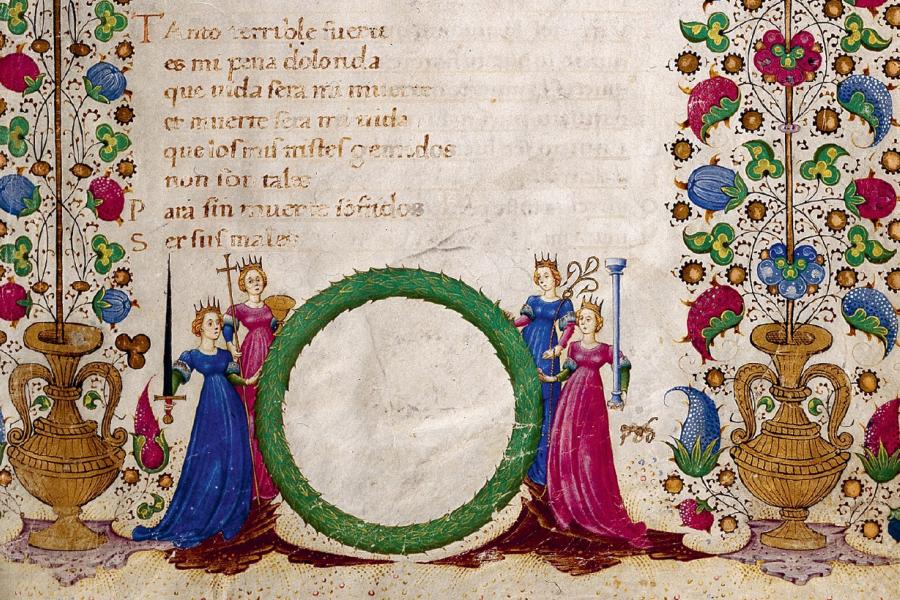 Tanto terrible fuerte
es mi pena dolorida
que uida sera mi muerte
et muerte sera mi uida
que los mis tristes gemidos
non son tales
Para sin muerte sofridos
Ser sus males